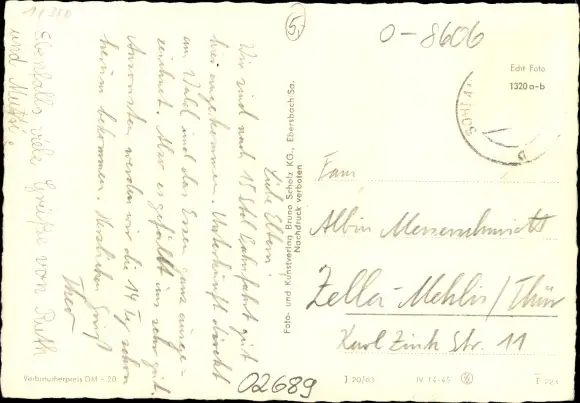 11350
5.
0-8606
Echt Foto
1320 a-b
SOHLA
Liebe Eltern!
Wir sind nach 15 Std. Bahnfahrt gut
hier angekommen. Unterkunft direkt
am Wald und das Essen ganz ausge-
zeichnet. Also es gefällt uns sehr gut.
Ansonsten werden wir die 14 Tg. schon
herum bekommen. Herzlichen Gruß
Theo
Ebenfalls viele Grüße von Ruth
und Mutti.
Foto- und Kunstverlag Bruno Scholz KG., Ebersbach/Sa.
Nachdruck verboten
Fam.
Albin Messerschmidt
Zella-Mehlis/Thür
Karl Zink Str. 11
Verbraucherpreis DM -.20
02689
J 20/65
IV-14-45
E 223